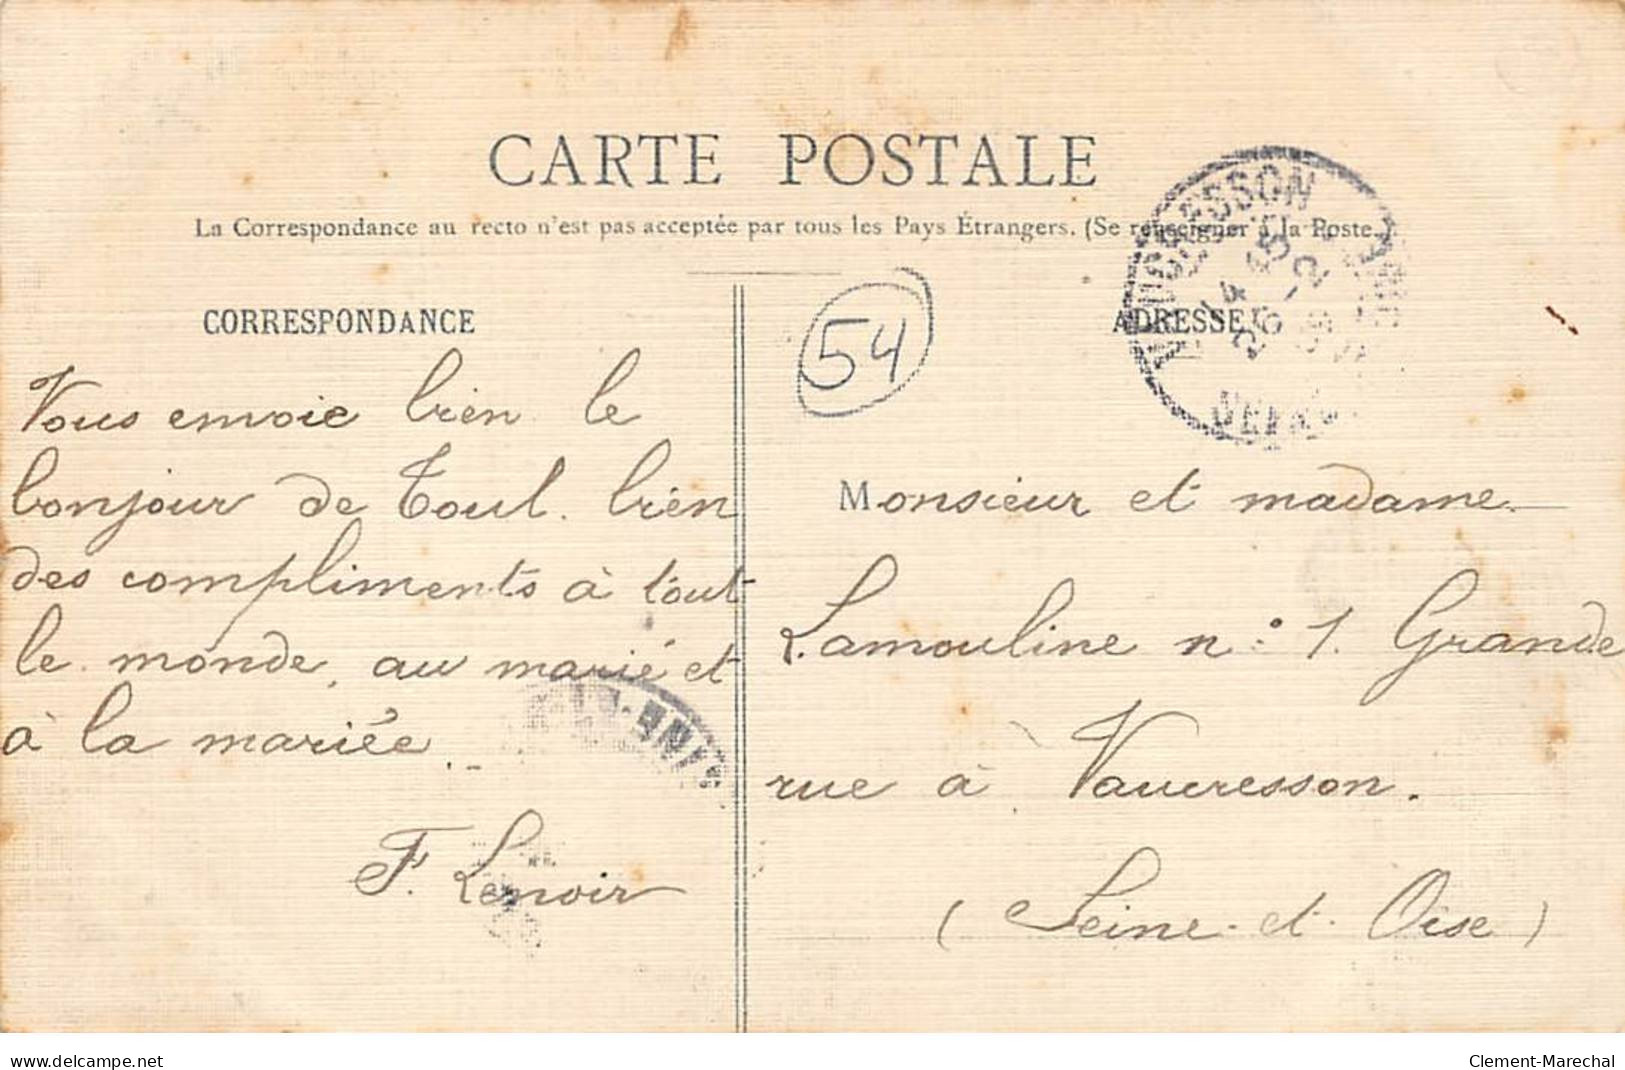 CARTE POSTALE
La Correspondance au recto n'est pas acceptée par tous les Pays Étrangers. (Se renseigner à la Poste.)
CORRESPONDANCE
Vous envoie bien le
bonjour de Toul. bien
des compliments à tout
le monde, au marié et
à la mariée.
F. Lenoir
54
ADRESSE
VAUCRESSON
Monsieur et madame
Lamouline n° 1. Grande
rue à Vaucresson.
(Seine-et-Oise)
www.delcampe.net
Clement-Marechal